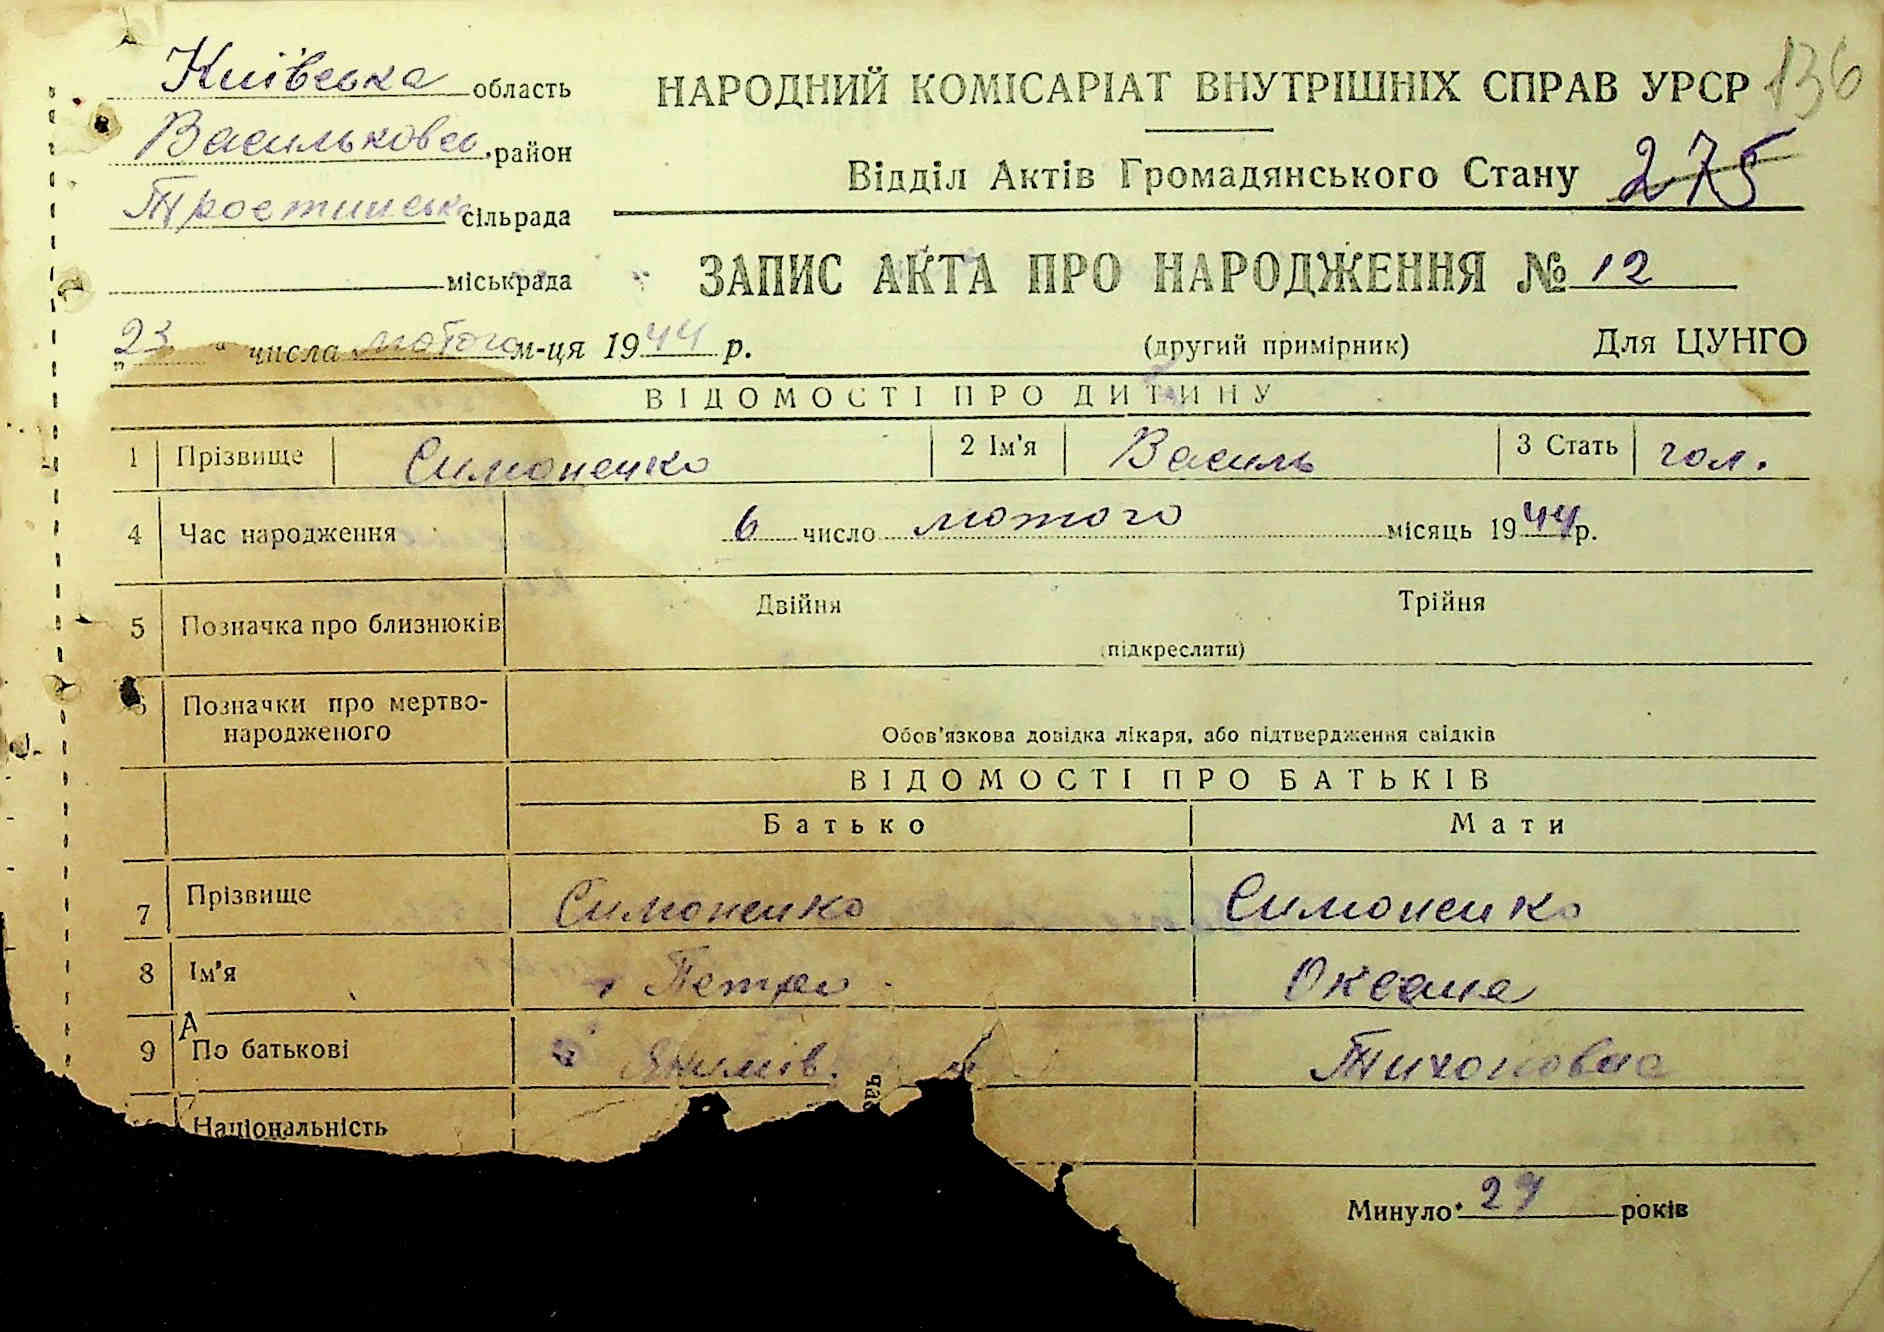 136
Київська область
НАРОДНИЙ КОМІСАРІАТ ВНУТРІШНІХ СПРАВ УРСР
Васильковсь. район
Відділ Актів Громадянського Стану 275
Тростинська сільрада
міськрада
ЗАПИС АКТА ПРО НАРОДЖЕННЯ № 12
„23“ числа лютого м-ця 1944 р.
(другий примірник) Для ЦУНГО
ВІДОМОСТІ ПРО ДИТИНУ
1 Прізвище Симоненко 2 Ім'я Василь 3 Стать чол.
4 Час народження 6 число лютого місяць 1944 р.
5 Позначка про близнюків Двійня Трійня
(підкреслити)
6 Позначки про мертво-
народженого
Обов'язкова довідка лікаря, або підтвердження свідків
ВІДОМОСТІ ПРО БАТЬКІВ
Батько Мати
7 Прізвище Симоненко Симоненко
8 Ім'я Петро Оксана
9 По батькові Якимів. Тихоновна
Національність
Минуло 27 років